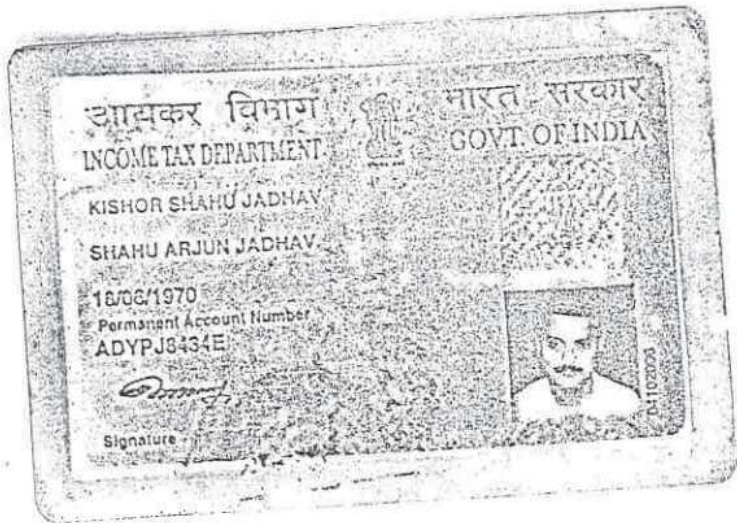 आयकर विभाग
INCOME TAX DEPARTMENT
भारत सरकार
GOVT. OF INDIA
KISHOR SHAHU JADHAV
SHAHU ARJUN JADHAV
18/06/1970
Permanent Account Number
ADYPJ8434E
Signature